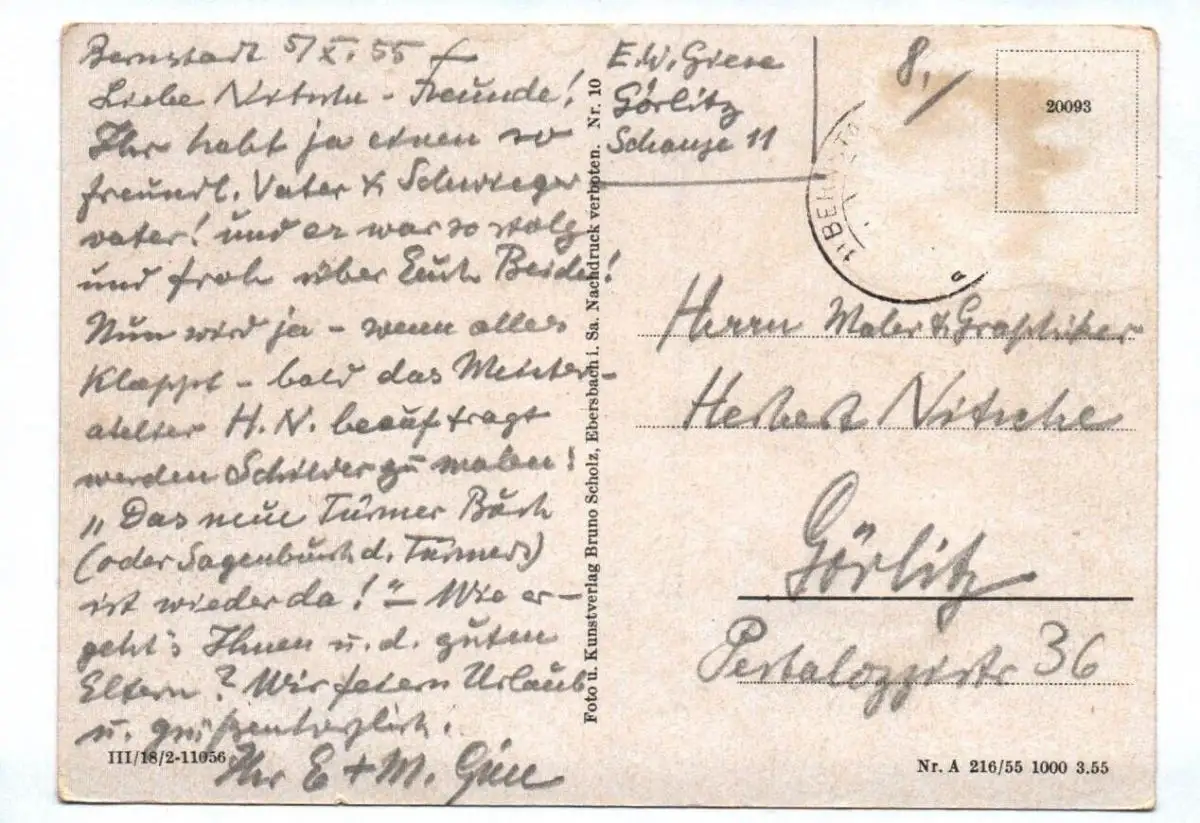 Bernstadt 5/X. 55
Liebe Nitsche-Freunde!
Ihr habt ja einen so
freundl. Vater & Schwieger
vater! und er war so stolz
und froh über Euch Beide!
Nun wird ja - wenn alles
klappt - bald das Meister-
atelier H. N. beauftragt
werden Schilder zu malen!
„Das neue Türmer Buch
(oder Sagenbuch d. Türmers)
ist wieder da!" - Wie er-
geht's Ihnen u. d. guten
Eltern? Wir feiern Urlaub
u. grüßen herzlich.
Ihr E + M. Giese
III/18/2-11056
Foto u. Kunstverlag Bruno Scholz, Ebersbach i. Sa. Nachdruck verboten. Nr. 10
E. W. Giese
Görlitz
Schanze 11
8,
20093
Herrn Maler & Graphiker
Herbert Nitsche
Görlitz
Pestalozzistr 36
Nr. A 216/55 1000 3.55